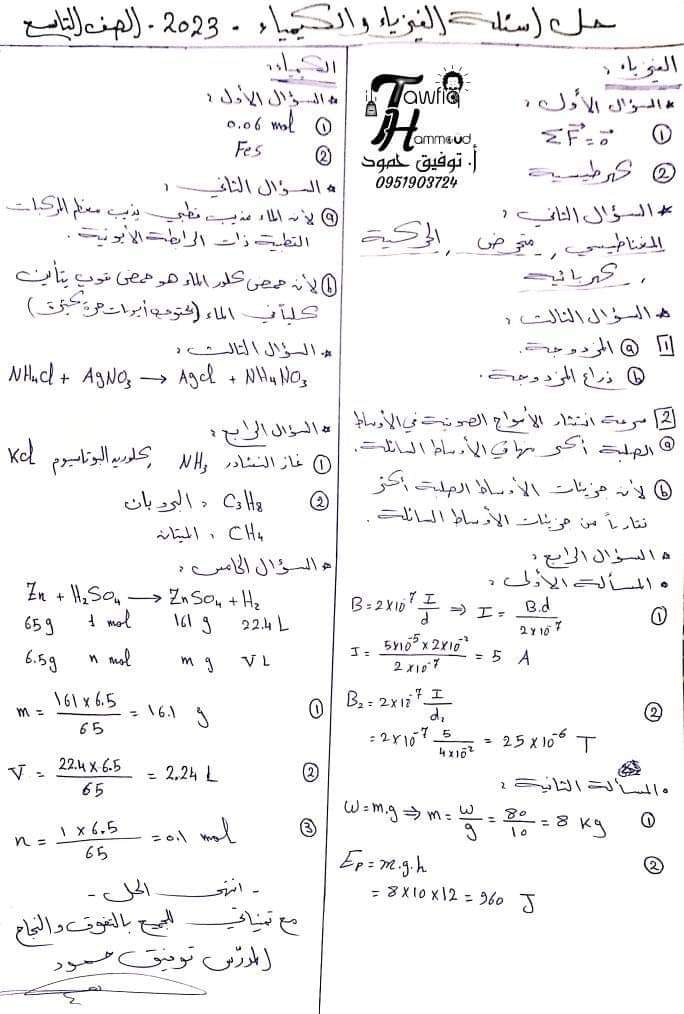 حل أسئلة الفيزياء والكيمياء - 2023 - الصف التاسع
الفيزياء :
* السؤال الأول :
① ΣF⃗ = 0⃗
② كهرطيسية
* السؤال الثاني :
المغناطيسي , متحرض , الحركية
, كهربائية
* السؤال الثالث :
1 ⓐ المزدوجة.
ⓑ ذراع المزدوجة.
2 سرعة انتشار الأمواج الصوتية في الأوساط
ⓐ الصلبة أكبر منها في الأوساط السائلة.
ⓑ لأن جزيئات الأوساط الصلبة أكثر
تقارباً من جزيئات الأوساط السائلة.
* السؤال الرابع :
• المسألة الأولى :
① B = 2×10⁻⁷ I/d ⇒ I = B.d / 2×10⁻⁷
I = 5×10⁻⁵ × 2×10⁻² / 2×10⁻⁷ = 5 A
② B₂ = 2×10⁻⁷ I/d₂
= 2×10⁻⁷ 5 / 4×10⁻² = 25×10⁻⁶ T
• المسألة الثانية :
① W = m.g ⇒ m = W/g = 80/10 = 8 Kg
② Eₚ = m.g.h
= 8×10×12 = 960 J
Tawfiq
Hammoud
أ. توفيق حمود
0951903724
الكيمياء :
* السؤال الأول :
① 0.06 mol
② FeS
* السؤال الثاني :
ⓐ لأن الماء مذيب قطبي يذيب معظم المركبات
القطبية ذات الرابطة الأيونية.
ⓑ لأن حمض كلور الماء هو حمض قوي يتأين
كلياً في الماء
* السؤال الثالث :
NH₄Cl + AgNO₃ → AgCl + NH₄NO₃
* السؤال الرابع :
① غاز النشادر NH₃ , كلوريد البوتاسيوم KCl
② البروبان : C₃H₈
الميتان : CH₄
* السؤال الخامس :
Zn + H₂SO₄ → ZnSO₄ + H₂
65 g 1 mol 161 g 22.4 L
6.5 g n mol m g V L
① m = 161 × 6.5 / 65 = 16.1 g
② V = 22.4 × 6.5 / 65 = 2.24 L
③ n = 1 × 6.5 / 65 = 0.1 mol
- انتهى الحل -
مع تمنياتي للجميع بالتفوق والنجاح
المدرّس توفيق حمود